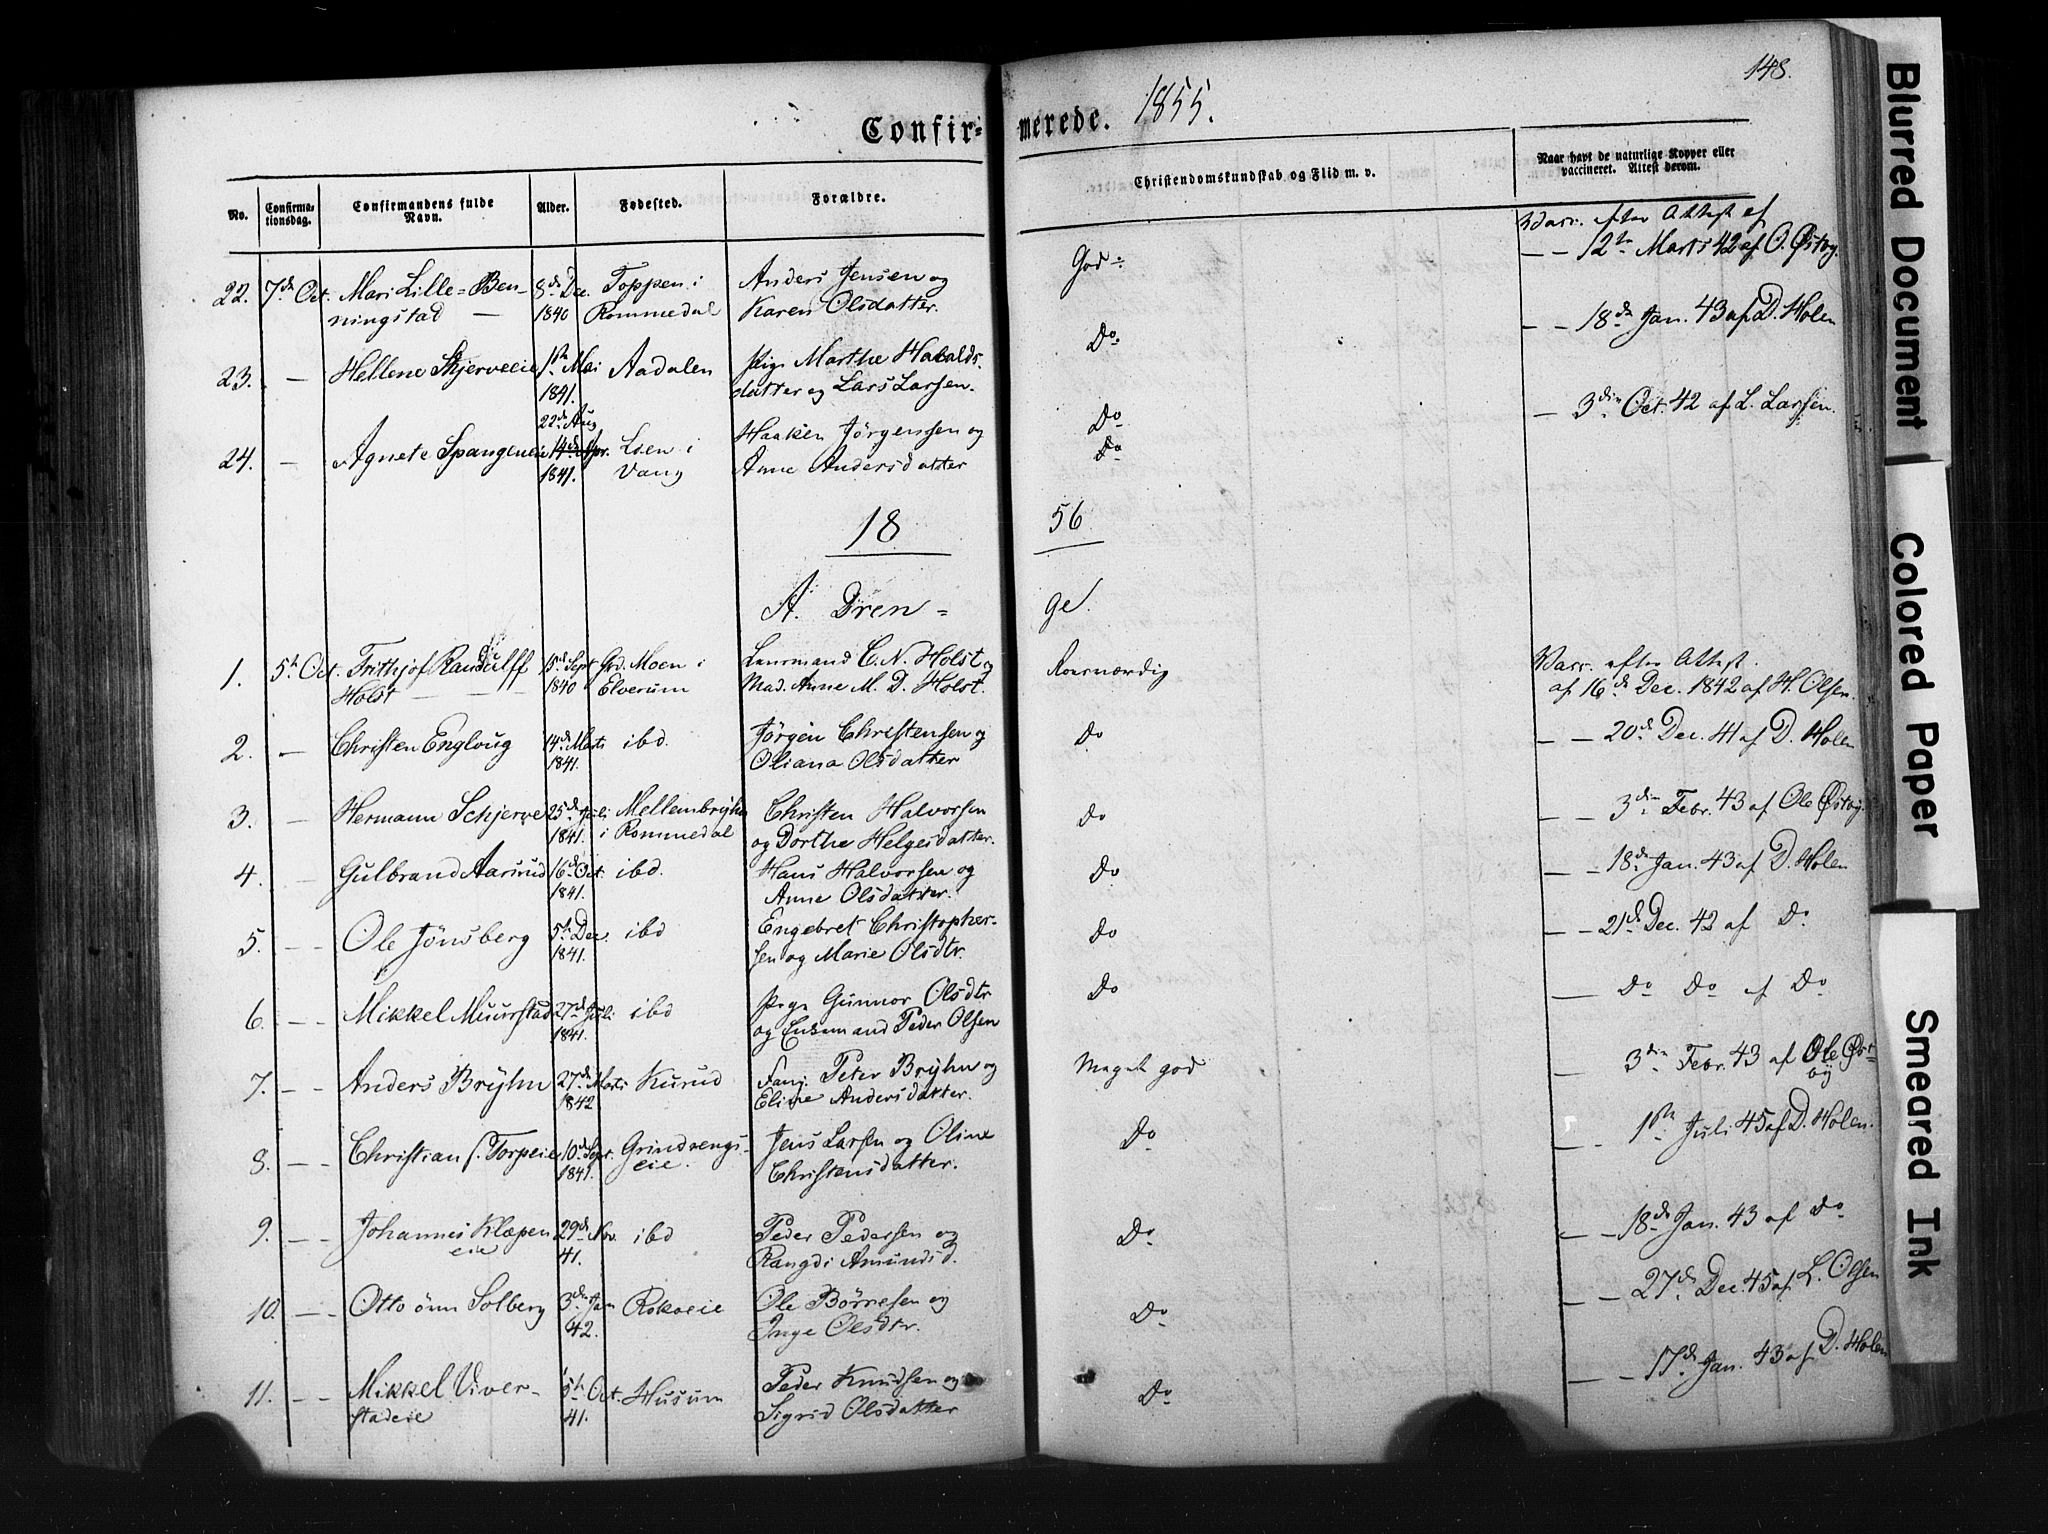 148.
Confir- merede. 1855.
No. Confirma- tionsdag. Confirmandens fulde Navn. Alder. Fødested. Forældre. Christendomskundskab og Flid m. v. Naar havt de naturlige Kopper eller vaccineret. Attest derom.
efter Attest af
22. 7de Oct. Mari Lille-Ben- 8de Dec. Toppen i Anders Jensen og God — — 12te Marts 42 af O. Østby.
ningstad — 1840 Rommedal Karen Olsdatter.
23. — Hellene Skjerveeie 1ste Mai Aadalen Pige Marthe Haralds- Do. — — 18de Jan. 43 af D. Holen
1841. datter og Lars Larsen.
22de Aug
24. — Agnete Spangeneie 14de Apr. Lien i Haaken Jörgenssen og Do — 3die Oct. 42 af L. Larsen.
1841. Vang Anne Andersdatter Do
18 56
A. Dren- ge.
1. 5te Oct. Frithjof Randulff 15de Sept Grd. Moen i Lensmand C. N. Holst og Roesværdig Vacc. efter Attest
Holst — — — 1840 Elverum Mad. Anne M. D. Holst. af 16de Dec. 1842 af H. Olsen.
2. — Christen Engloug 14de Marts ibd. Jörgen Christensen og Do — — 20de Dec. 41 af D. Holen
1841. Oliana Olsdatter
3. — Hermann Schjerve 25de Juli Mellembryhn Christen Halvorsen Do — 3die Febr. 43 af Ole Østby.
1841. i Rommedal og Dorthe Helgesdatter.
4. — Gulbrand Aarsrud 16de Oct. ibd. Hans Halvorsen og Do — — 18de Jan. 43 af D. Holen
1841. Anne Olsdatter.
5. — — Ole Jönsberg 5te Dec. ibd Engebret Christopher- Do — — 21de Dec. 42 af Do
1841. sen og Marie Olsdtr.
6. — — Mikkel Muurstad 27de Juli ibd Pige Gunnor Olsdtr Do — Do Do af Do
1841. og Enkemand Peder Olsen
7. — — Anders Bryhn 27de Marts Kurud Fanj. Peter Bryhn og Meget god — 3die Febr. 43 af Ole Øst-
1842 Eline Andersdatter. by
8. — — Christian s. Torpeie 10de Sept. Grindvengs- Jens Larsen og Oline Do — — 1ste Juli 45 af D. Holen.
1841. eie. Christensdatter.
9. — — Johannes Klæpen 29de Nov. ibd Peder Pedersen og Do — — 18de Jan. 43 af Do
eie 41. Rangdi Amundsd.
10. — — Otto önn Solberg 3die Jan Rokoeie Ole Börresen og Do — — 27de Dec. 45 af L. Olsen
42. Inge Olsdtr.
11. — — Mikkel Viver- 5te Oct. Husum Peder Knudsen og Do — — 17de Jan. 43 af D. Holen
stadeie 41. Sigrid Olsdatter
Blurred Document
Colored Paper
Smeared Ink